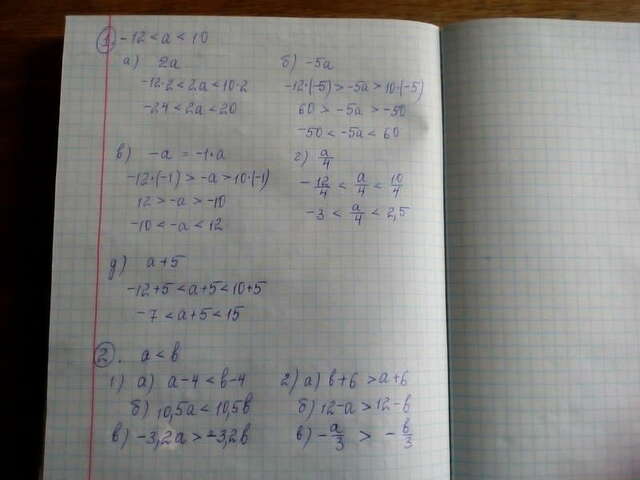 1. -12 < a < 10
а) 2a
-12·2 < 2a < 10·2
-24 < 2a < 20
б) -5a
-12·(-5) > -5a > 10·(-5)
60 > -5a > -50
-50 < -5a < 60
в) -a = -1·a
-12·(-1) > -a > 10·(-1)
12 > -a > -10
-10 < -a < 12
г) a/4
-12/4 < a/4 < 10/4
-3 < a/4 < 2,5
д) a+5
-12+5 < a+5 < 10+5
-7 < a+5 < 15
2. a < b
1) а) a-4 < b-4
б) 10,5a < 10,5b
в) -3,2a > -3,2b
2) а) b+6 > a+6
б) 12-a > 12-b
в) -a/3 > -b/3